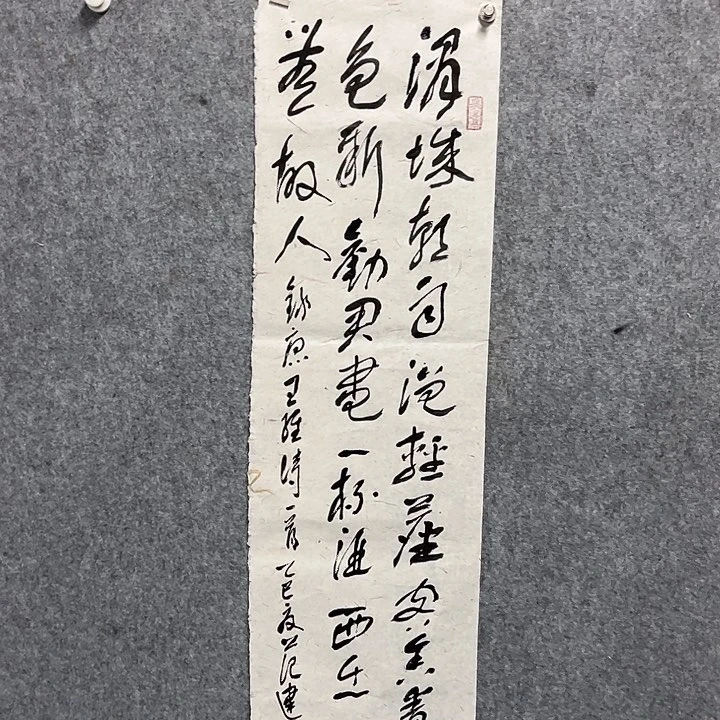 渭城朝雨浥輕塵客舍青
色新勸君盡一杯酒西出
無故人 錄唐王維詩一首乙巳夏范建